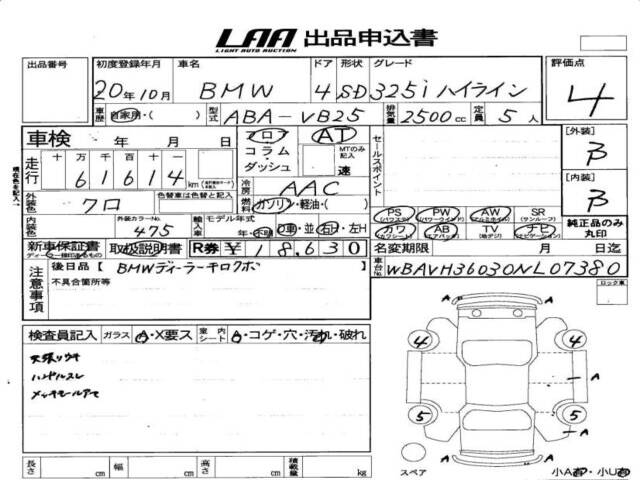 LAA 出品申込書
LIGHT AUTO AUCTION
出品番号 初度登録年月 車名 ドア 形状 グレード 評価点
20年10月 BMW 4 SD 325i ハイライン 4
自家用・( ) 型式 ABA-VB25 排気量 2500cc 定員 5人
車検 年 月 日 フロア AT セールスポイント [外装] B
コラム・ダッシュ MTのみ記入 速
走行 十 万 千 百 十 一
61614 km
現在色を記入→
冷房 AAC [内装] B
外装色 クロ 色替車は色替と記入 燃料 ガソリン・軽油・( )
PS (パワステ) PW (パワーウインド) AW (アルミホイル) SR (サンルーフ)
純正品のみ丸印
内装色 外装カラーNo. 475 輸入車 モデル年式 年・不明 D車・並 右H・左H
カワ (カワシート) AB (エアバック) TV (地デジ) ナビ (ナビゲーション)
新車保証書 取扱説明書 R券 ¥18,630 名変期限 月 日迄
注意事項 後日品【BMWディーラーキロクボ 車台No. WBAVH36030NL07380
不具合箇所等
ロック車
検査員記入 ガラス A・X要ス 室内シート A・コゲ・穴・汚れ・破れ
天張りウキ
ハンドルスレ
メッキモールアサ
4 4 A
A A
5 5 A
A
スペア
長さ cm 幅 cm 高さ cm 積載量 kg
小A有・小U有